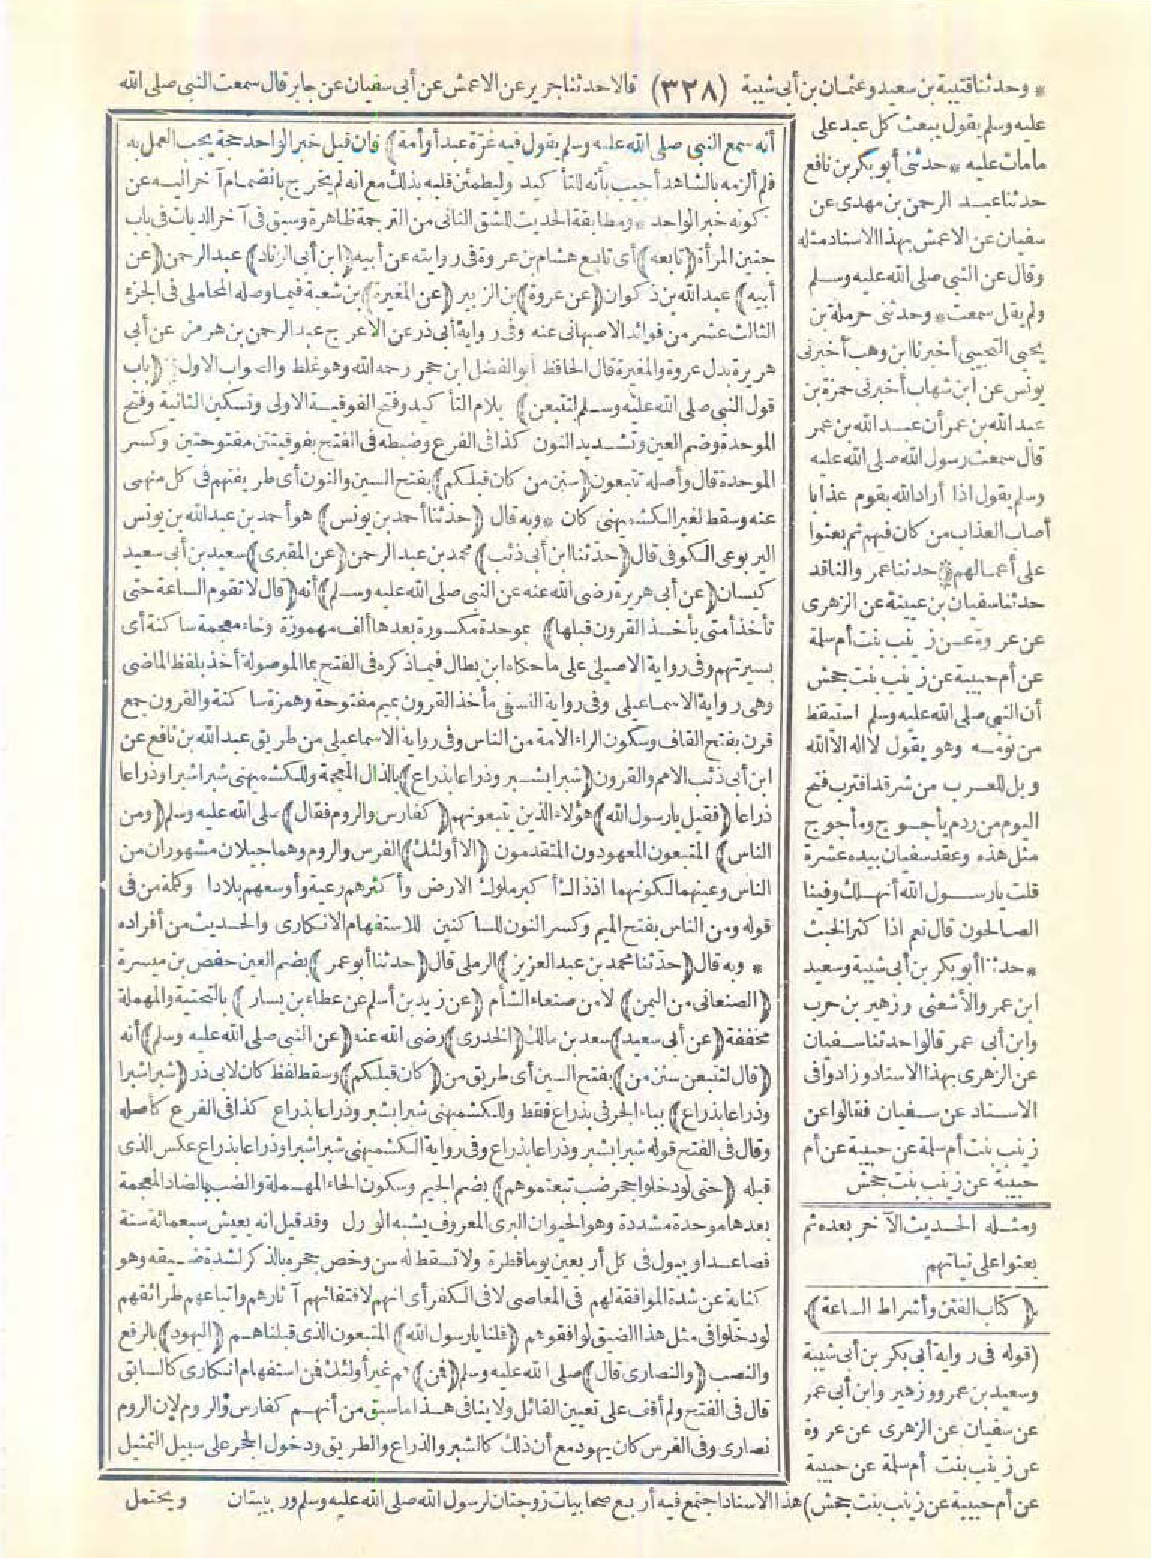 * وحدثنا قتيبة بن سعيد وعثمان بن أبى شيبة (٣٢٨) قالا حدثنا جرير عن الاعمش عن أبى سفيان عن جابر قال سمعت النبى صلى الله
عليه وسلم يقول يبعث كل عبد على
مامات عليه * حدثنى أبو بكر بن نافع
حدثنا عبد الرحمن بن مهدى عن
سفيان عن الاعمش بهذا الاسناد مثله
وقال عن النبى صلى الله عليه وسلم
ولم يقل سمعت * وحدثنى حرملة بن
يحيى التجيبى أخبرنا ابن وهب أخبرنى
يونس عن ابن شهاب أخبرنى حمزة بن
عبد الله بن عمر أن عبد الله بن عمر
قال سمعت رسول الله صلى الله عليه
وسلم يقول اذا أراد الله بقوم عذابا
أصاب العذاب من كان فيهم ثم بعثوا
على أعمالهم * حدثنا عمرو الناقد
حدثنا سفيان بن عيينة عن الزهرى
عن عروة عن زينب بنت أم سلمة
عن أم حبيبة عن زينب بنت جحش
أن النبى صلى الله عليه وسلم استيقظ
من نومه وهو يقول لا اله الا الله
ويل للعرب من شر قد اقترب فتح
اليوم من ردم يأجوج ومأجوج
مثل هذه وعقد سفيان بيده عشرة
قلت يارسول الله أنهلك وفينا
الصالحون قال نعم اذا كثر الخبث
* حدثنا أبو بكر بن أبى شيبة وسعيد
ابن عمرو الأشعثى وزهير بن حرب
وابن أبى عمر قالوا حدثنا سفيان
عن الزهرى بهذا الاسناد وزادوا فى
الاسناد عن سفيان فقالوا عن
زينب بنت أم سلمة عن حبيبة عن أم
حبيبة عن زينب بنت جحش
ومثله الحديث الآخر بعده ثم
بعثوا على نياتهم
(كتاب الفتن وأشراط الساعة)
(قوله فى رواية أبى بكر بن أبى شيبة
وسعيد بن عمرو وزهير وابن أبى عمر
عن سفيان عن الزهرى عن عروة
عن زينب بنت أم سلمة عن حبيبة
عن أم حبيبة عن زينب بنت جحش) هذا الاسناد اجتمع فيه أربع صحابيات زوجتان لرسول الله صلى الله عليه وسلم وربيبتان ويحتمل
أنه سمع النبى صلى الله عليه وسلم يقول فيه غرة عبد أو أمة) فان قيل خبر الواحد حجة يجب العمل به
فلم ألزمه بالشاهد أجيب بأنه للتأكيد وليطمئن قلبه بذلك مع انه لم يخرج بانضمام آخر اليه عن
كونه خبر الواحد * ومطابقة الحديث للشق الثانى من الترجمة ظاهرة وسبق فى آخر الديات فى باب
جنين المرأة (تابعه) أى تابع هشام بن عروة فى روايته عن أبيه (ابن أبى الزناد) عبد الرحمن (عن
أبيه) عبد الله بن ذكوان (عن عروة) بن الزبير (عن المغيرة) بن شعبة فيما وصله المحاملى فى الجزء
الثالث عشر من فوائد الاصبهانى عنه وفى رواية أبى ذر عن الاعرج عبد الرحمن بن هرمز عن أبى
هريرة بدل عروة والمغيرة قال الحافظ أبو الفضل ابن حجر رحمه الله وهو غلط والصواب الاول (باب
قول النبى صلى الله عليه وسلم لتتبعن) بلام التأكيد وفتح الفوقية الاولى وتسكين الثانية وفتح
الموحدة وضم العين وتشديد النون كذا فى الفرع وضبطه فى الفتح بفوقيتين مفتوحتين وكسر
الموحدة قال وأصله تتبعون (سنن من كان قبلكم) بفتح السين والنون أى طريقتهم فى كل منهى
عنه وسقط لغير الكشميهنى كان * وبه قال (حدثنا أحمد بن يونس) هو أحمد بن عبد الله بن يونس
اليربوعى الكوفى قال (حدثنا ابن أبى ذئب) محمد بن عبد الرحمن (عن المقبرى) سعيد بن أبى سعيد
كيسان (عن أبى هريرة رضى الله عنه عن النبى صلى الله عليه وسلم) أنه (قال لا تقوم الساعة حتى
تأخذ أمتى بأخذ القرون قبلها) بموحدة مكسورة بعدها ألف مهموزة وخاء معجمة ساكنة أى
بسيرتهم وفى رواية الاصيلى على ما حكاه ابن بطال فيما ذكره فى الفتح بما الموصولة أخذ بلفظ الماضى
وهى رواية الاسماعيلى وفى رواية النسفى مأخذ القرون بميم مفتوحة وهمزة ساكنة والقرون جمع
قرن بفتح القاف وسكون الراء الامة من الناس وفى رواية الاسماعيلى من طريق عبد الله بن نافع عن
ابن أبى ذئب الامم والقرون (شبرا بشبر وذراعا بذراع) بالذال المعجمة وللكشميهنى شبرا شبرا وذراعا
ذراعا (فقيل يارسول الله) هؤلاء الذين يتبعونهم (كفارس والروم فقال) صلى الله عليه وسلم (ومن
الناس) المتبعون المعهودون المتقدمون (الا أولئك) الفرس والروم وهما جيلان مشهوران من
الناس وعينهما لكونهما اذ ذاك أكبر ملوك الارض وأكثرهم رعية وأوسعهم بلادا وكلمة من فى
قوله ومن الناس بفتح الميم وكسر النون للساكنين للاستفهام الانكارى والحديث من أفراده
* وبه قال (حدثنا محمد بن عبد العزيز) الرملى قال (حدثنا أبو عمر) بضم العين حفص بن ميسرة
(الصنعانى من اليمن) لا من صنعاء الشأم (عن زيد بن أسلم عن عطاء بن يسار) بالتحتية والمهملة
مخففة (عن أبى سعيد) سعد بن مالك (الخدرى) رضى الله عنه (عن النبى صلى الله عليه وسلم) أنه
(قال لتتبعن سنن من) بفتح السين أى طريق من (كان قبلكم) وسقط لفظ كان لابى ذر (شبرا شبرا
وذراعا بذراع) بباء الجر فى بذراع فقط وللكشميهنى شبرا بشبر وذراعا بذراع كذا فى الفرع كأصله
وقال فى الفتح قوله شبرا بشبر وذراعا بذراع وفى رواية الكشميهنى شبرا شبرا وذراعا بذراع عكس الذى
قبله (حتى لو دخلوا جحر ضب تبعتموهم) بضم الجيم وسكون الحاء المهملة والضب بالضاد المعجمة
بعدها موحدة مشددة وهو الحيوان البرى المعروف يشبه الورل وقد قيل انه يعيش سبعمائة سنة
فصاعدا ويبول فى كل أربعين يوما قطرة ولا تسقط له سن وخص جحره بالذكر لشدة ضيقه وهو
كناية عن شدة الموافقة لهم فى المعاصى لا فى الكفر أى انهم لاقتفائهم آثارهم واتباعهم طرائقهم
لو دخلوا فى مثل هذا الضيق لوافقوهم (قلنا يارسول الله) المتبعون الذى قبلنا هم (اليهود) بالرفع
والنصب (والنصارى قال) صلى الله عليه وسلم (فمن) هم غير أولئك فمن استفهام انكارى كالسابق
قال فى الفتح ولم أقف على تعيين القائل ولا ينافى هذا ما سبق من أنهم كفارس والروم لان الروم
نصارى وفى الفرس كان يهود مع أن ذلك كالشبر والذراع والطريق ودخول الجحر على سبيل التمثيل